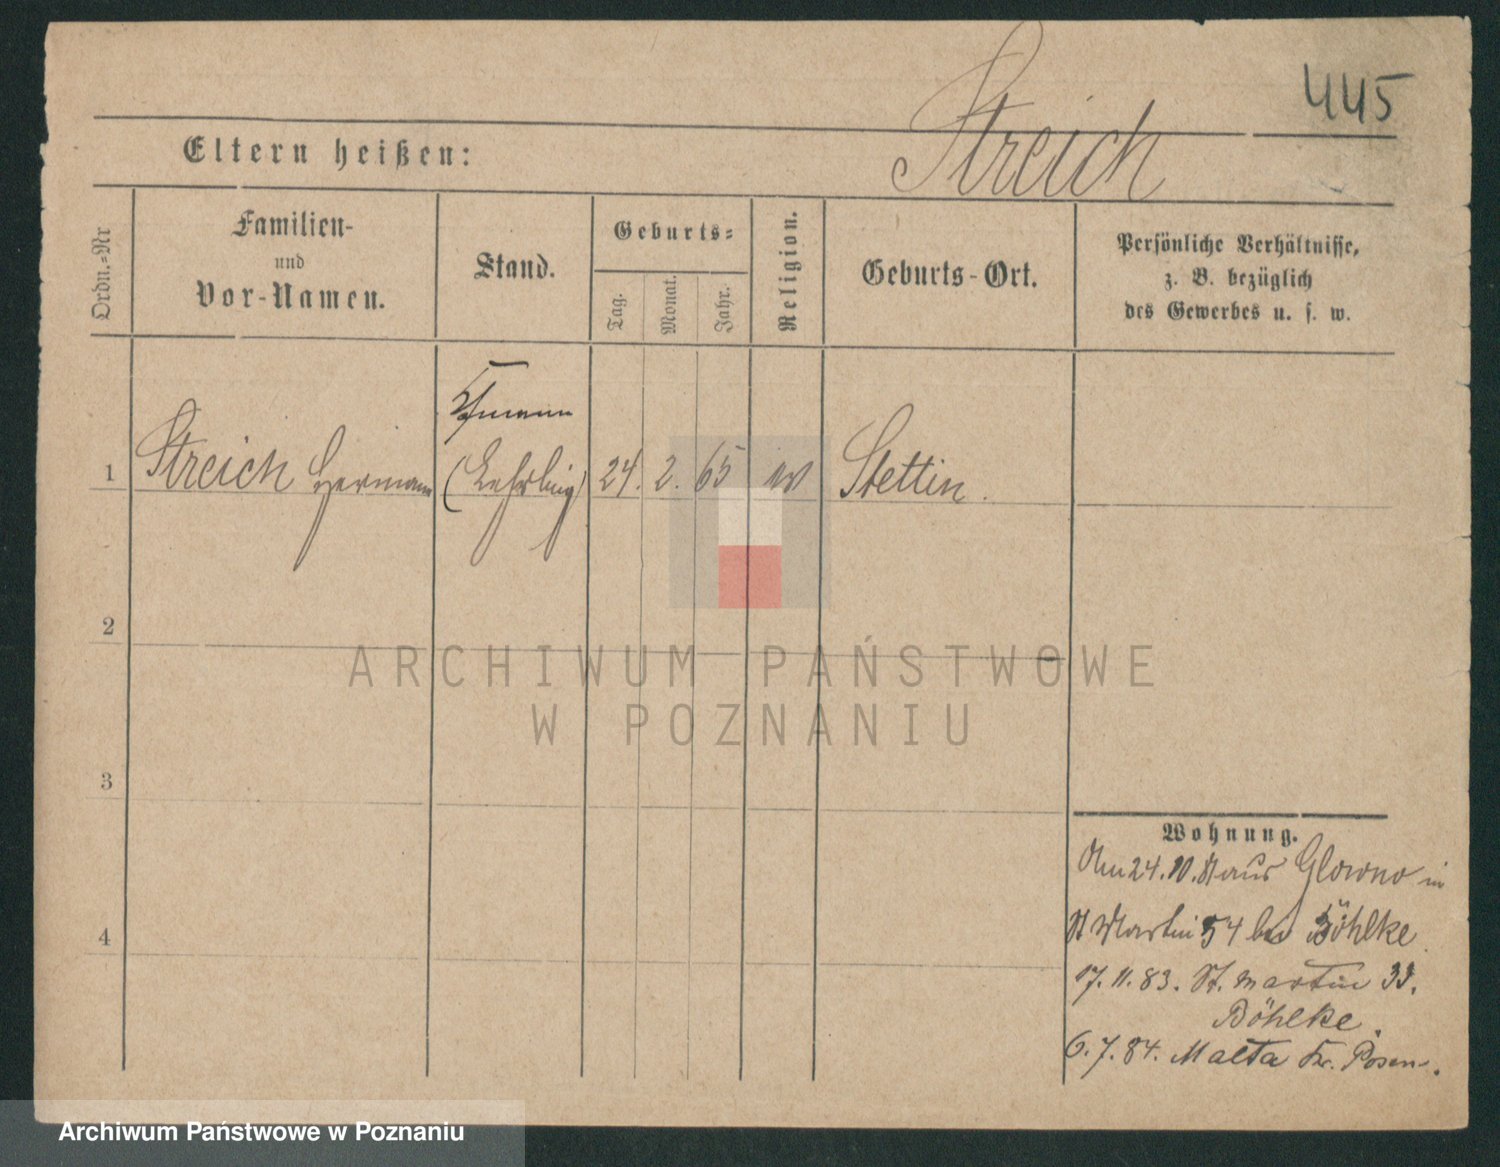 445
Streich
Eltern heißen:
Ordn.-Nr
Familien-
und
Vor-Namen.
Stand.
Geburts-
Tag.
Monat.
Jahr.
Religion.
Geburts-Ort.
Persönliche Verhältnisse,
z. B. bezüglich
des Gewerbes u. s. w.
1
Streich Hermann
(Lehrling)
24. 2. 65
Stettin.
2
3
4
Wohnung.
Am 24.10. aus Glowno in
St Martin 54 bei Böhlke
17.11.83. St. Martin 33.
Böhlke.
6.7.84. Malta Kr. Posen.
ARCHIWUM PAŃSTWOWE
W POZNANIU
Archiwum Państwowe w Poznaniu